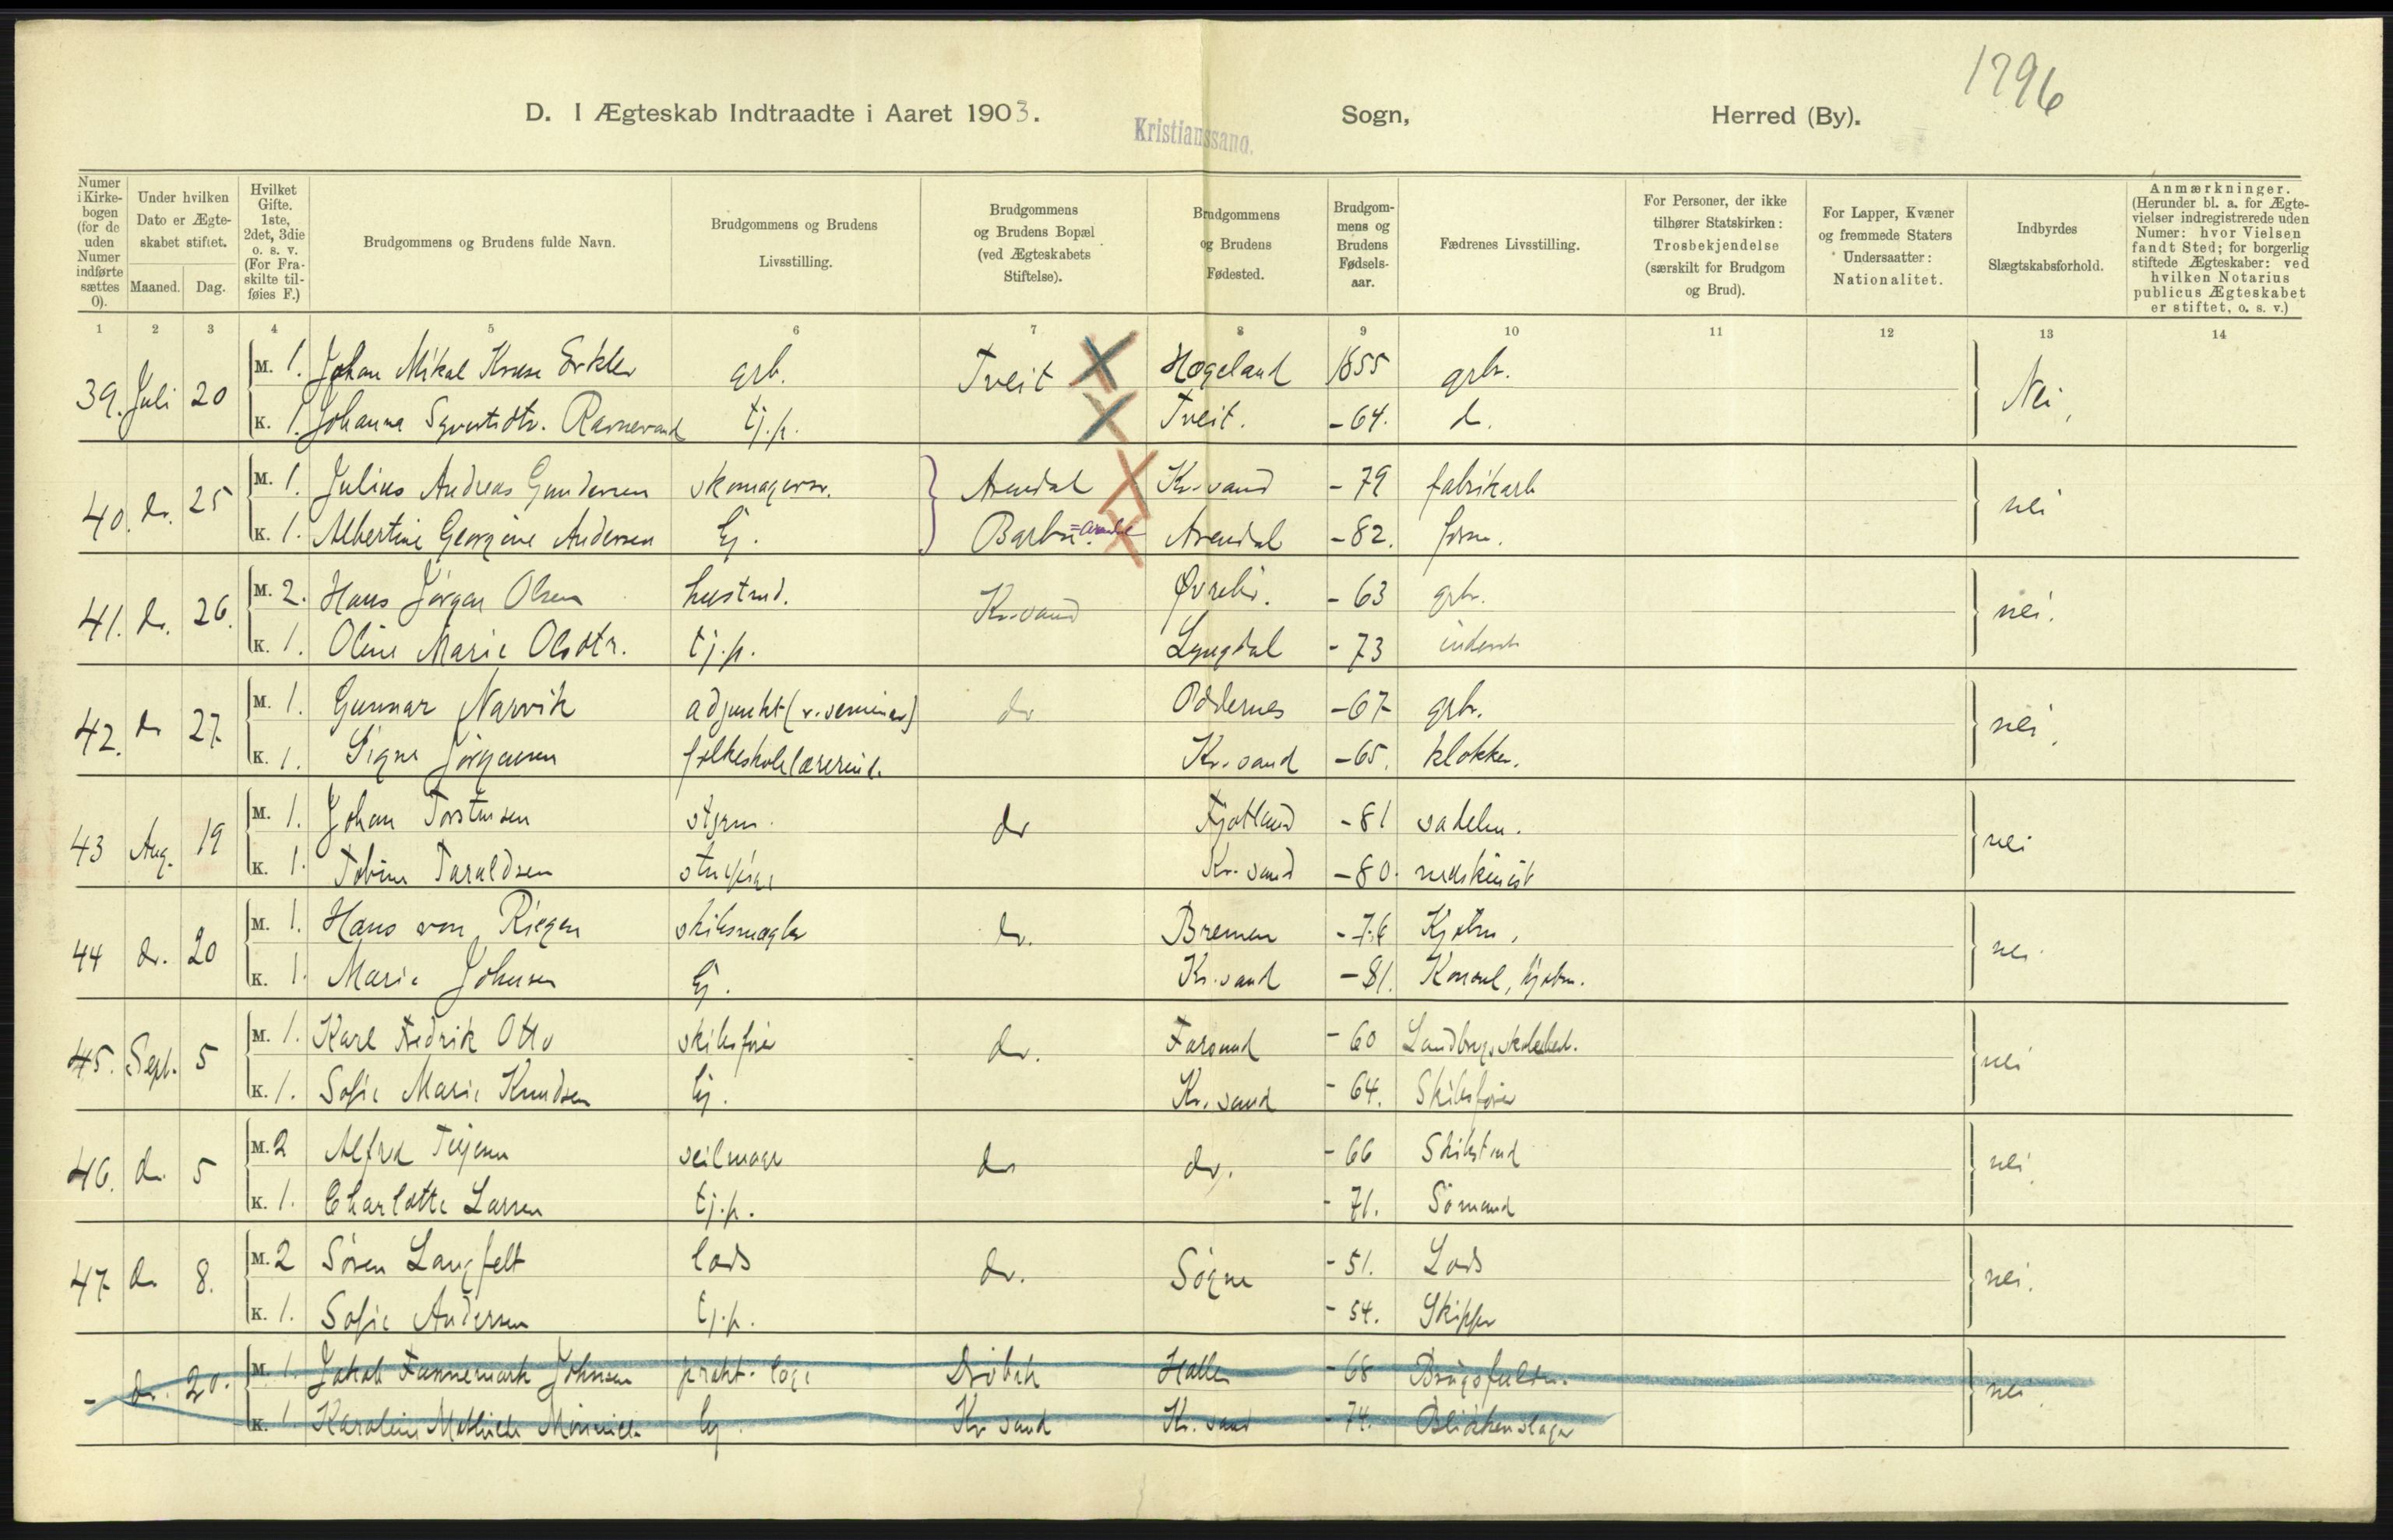 1296
D. I Ægteskab Indtraadte i Aaret 1903. Sogn, Herred (By).
Kristianssand.
Numer i Kirkebogen (for de uden Numer indførte sættes 0).
Under hvilken Dato er Ægteskabet stiftet.
Maaned. Dag.
Hvilket Gifte. 1ste, 2det, 3die o. s. v. (For Fraskilte tilføies F.)
Brudgommens og Brudens fulde Navn.
Brudgommens og Brudens Livsstilling.
Brudgommens og Brudens Bopæl (ved Ægteskabets Stiftelse).
Brudgommens og Brudens Fødested.
Brudgommens og Brudens Fødselsaar.
Fædrenes Livsstilling.
For Personer, der ikke tilhører Statskirken: Trosbekjendelse (særskilt for Brudgom og Brud).
For Lapper, Kvæner og fremmede Staters Undersaatter: Nationalitet.
Indbyrdes Slægtskabsforhold.
Anmærkninger. (Herunder bl. a. for Ægtevielser indregistrerede uden Numer: hvor Vielsen fandt Sted; for borgerlig stiftede Ægteskaber: ved hvilken Notarius publicus Ægteskabet er stiftet, o. s. v.)
1 2 3 4 5 6 7 8 9 10 11 12 13 14
39. Juli 20 M. 1. Johan Mikal Kruse Erklev grb. Tveit Høgeland 1855 grb. Nei,
K. 1. Johanna Syvertsdtr. Ravnevand tj.p. Tveit. -64. d.
40. do. 25 M. 1. Julius Andreas Gundersen skomagersv. Arendal Kr.sand -79 fabrikarb nei
K. 1. Albertine Georgine Andersen Ej. Barbu =Arendal Arendal -82. form.
41. do. 26. M. 2. Hans Jörgen Olsen hustmd. Kr.sand Øvrebö. -63 grb. nei.
K. 1. Oline Marie Olsdtr. tj.p. Lyngdal -73 inderst
42. do 27. M. 1. Gunnar Narvik adjunkt (v. seminar) do Oddernes -67 grb. nei,
K. 1. Signe Jörgensen folkeskolelærerind. Kr.sand -65. klokker.
43 Aug. 19 M. 1. Johan Torstensen styrm. do Fjotland -81 sadelm. nei
K. 1. Tobine Taraldsen stuepige Kr.sand -80. maskinist
44 do. 20 M. 1. Hans von Riegen skibsmægler do. Bremen -76 Kjøbm. nei
K. 1. Marie Johnsen Ej. Kr.sand -81. Konsul, kjøbm.
45. Sept. 5 M. 1. Karl Fredrik Otto skibsfører do. Farsund -60 Landbrugsskolebest. nei
K. 1. Sofie Marie Knudsen Ej. Kr.sand -64. Skibsfører
46. do. 5 M. 2 Alfred Terjesen seilmager do do. -66 Skibstmd nei,
K. 1. Charlotte Larsen tj.p. -71. Sömand
47 do 8. M. 2 Søren Langfelt lods do. Søgne -51. Lods nei.
K. 1. Sofie Andersen tj.p. -54. Skipper
- do. 20. M. 1. Jakob Fannemark Johnsen prakt. læge Dröbak Halle -68 Brugsfuldm. nei,
K. 1. Karoline Mathilde Ej Kr.sand Kr.sand -74. Blikkenslager